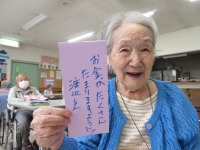 お金がたくさん
たまりますように
渡辺